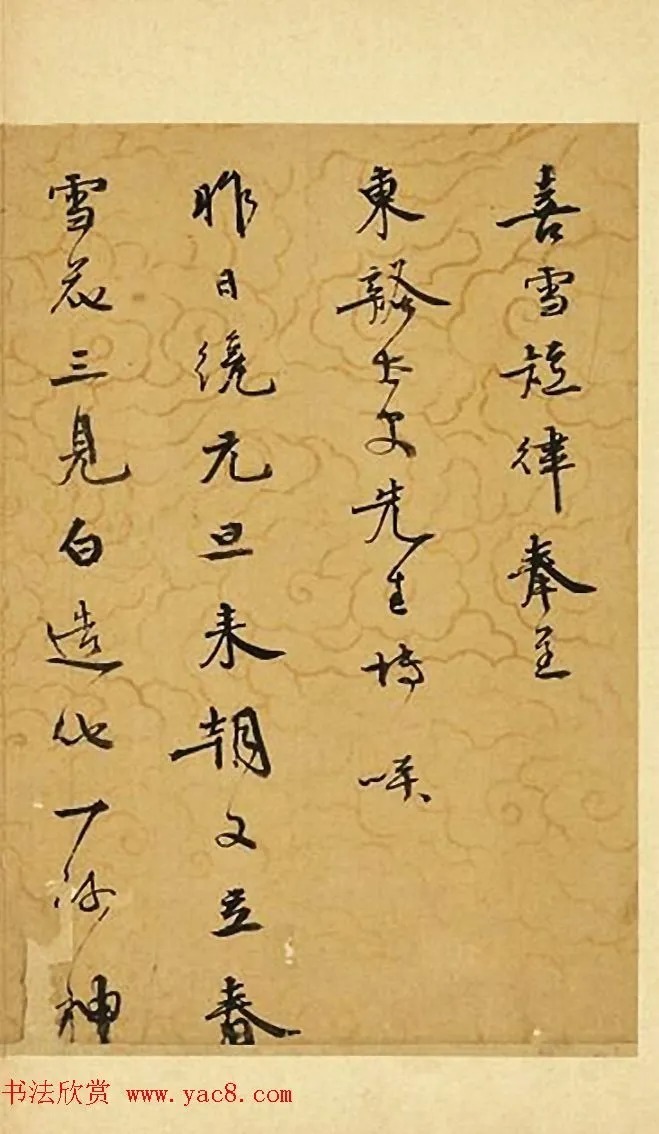 喜雪短律奉呈
東谿先生博咲
昨日纔元旦来朝又立春
雪花三見白造化一何神
书法欣赏 www.yac8.com